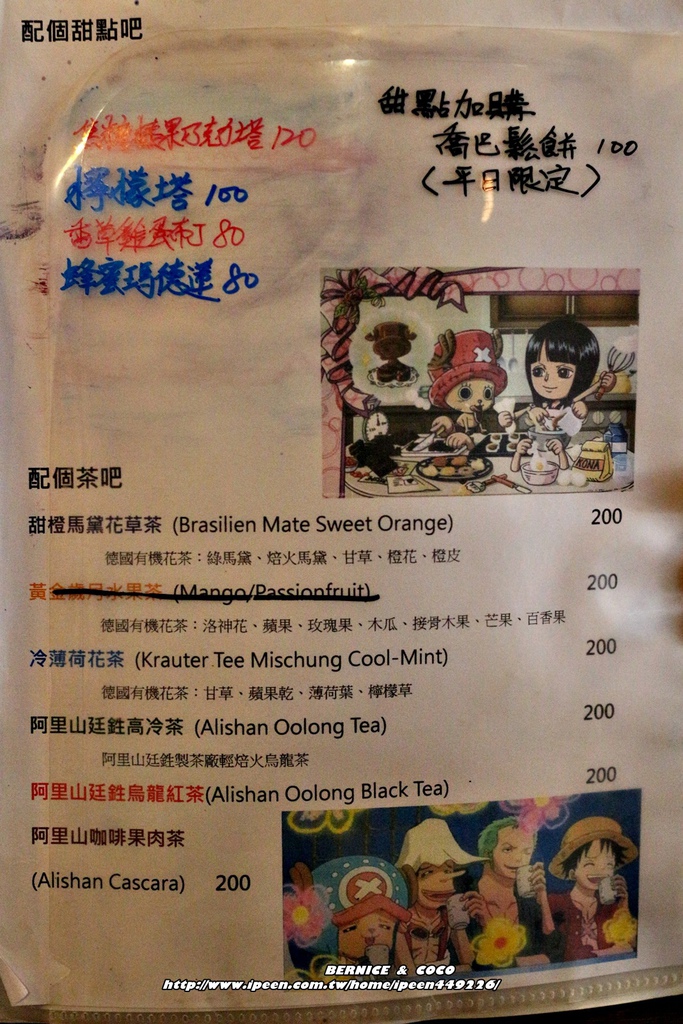 配個甜點吧
焦糖堅果巧克力塔 120
檸檬塔 100
香草雞蛋布丁 80
蜂蜜瑪德蓮 80
甜點加購
喬巴鬆餅 100
(平日限定)
KONA
配個茶吧
甜橙馬黛花草茶 (Brasilien Mate Sweet Orange) 200
德國有機花茶：綠馬黛、焙火馬黛、甘草、橙花、橙皮
黃金歲月水果茶 (Mango/Passionfruit) 200
德國有機花茶：洛神花、蘋果、玫瑰果、木瓜、接骨木果、芒果、百香果
冷薄荷花茶 (Krauter Tee Mischung Cool-Mint) 200
德國有機花茶：甘草、蘋果乾、薄荷葉、檸檬草
阿里山廷鉎高冷茶 (Alishan Oolong Tea) 200
阿里山廷鉎製茶廠輕焙火烏龍茶
阿里山廷鉎烏龍紅茶(Alishan Oolong Black Tea) 200
阿里山咖啡果肉茶
(Alishan Cascara) 200
BERNICE & COCO
http://www.ipeen.com.tw/home/ipeen449226/